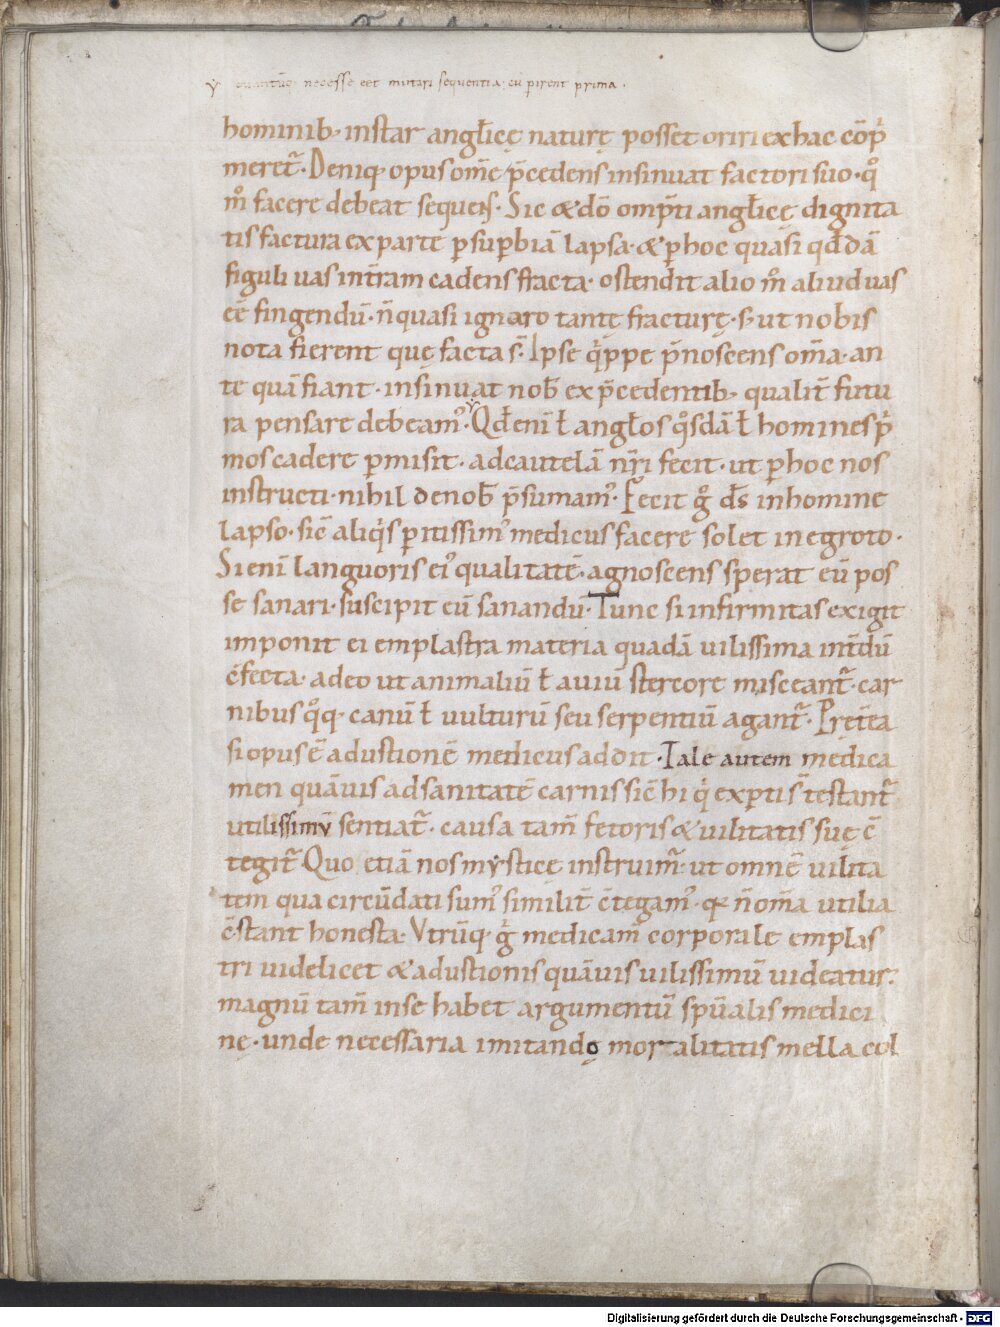 necesse eet mutari sequentia cu perirent prima.
hominib; instar anglicę naturę posset oriri ex hac cōp̄
meret᷑. Deniq; opus om̄e p̄cedens insinuat factori suo. qͦ
mͦ facere debeat sequens. Sic & dō omp̄ti anglicę dignita
tis factura ex parte p supbiā lapsa. & p hoc quasi qddā
figuli uas in t̄ram cadens fracta. ostendit alio mͦ aliud uas
eē fingendū. n̄ quasi ignaro tantę fracturę. s; ut nobis
nota fierent quę facta s̄. Ipse qͥppe p̄noscens om̄a. an
te quā fiant. insinuat nob̄ ex p̄cedentib; qualit̄ futu
ra pensare debeam᷒. Qd enī ł angłos qͦsdā ł homines pͥ
mos cadere pmisit. ad cautelā nr̄i fecit. ut p hoc nos
instructi. nihil de nob̄ p̄sumam᷒. Fecit gͦ d̄s in homine
lapso. sic̄ aliqͥs pitissim᷒ medicus facere solet in egroto.
Si enī languoris ei᷒ qualitatē. agnoscens sperat eū pos
se sanari. suscipit eū sanandū. Tunc si infirmitas exigit
imponit ei emplastra materia quadā uilissima int̄dū
c̄fecta. adeo ut animaliū ł auiū stercore misceant᷑. car
nibus qͦq; canū ł uulturū seu serpentiū agant᷑. Pret̄ea
si opus ē adustionē medicus addit. Tale autem medica
men quāuis ad sanitatē carnis sic̄ hi qͥ exptis testant᷑
utilissimū sentiat᷑. causa tam̄ fetoris & uilitatis suę c̄
tegit᷑. Quo etiā nos mysticę instruim᷑. ut omnē uilita
tem qua circūdati sum᷒ similit̄ c̄tegam᷒. q; n̄ om̄a utilia
c̄stant honesta. Vtrūq; gͦ medicam̄ corporale emplas
tri uidelicet & adustionis quāuis uilissimū uideatur.
magnū tam̄ in se habet argumentū spūalis medici
nę. unde necessaria imitando mortalitatis mella col
Digitalisierung gefördert durch die Deutsche Forschungsgemeinschaft - DFG